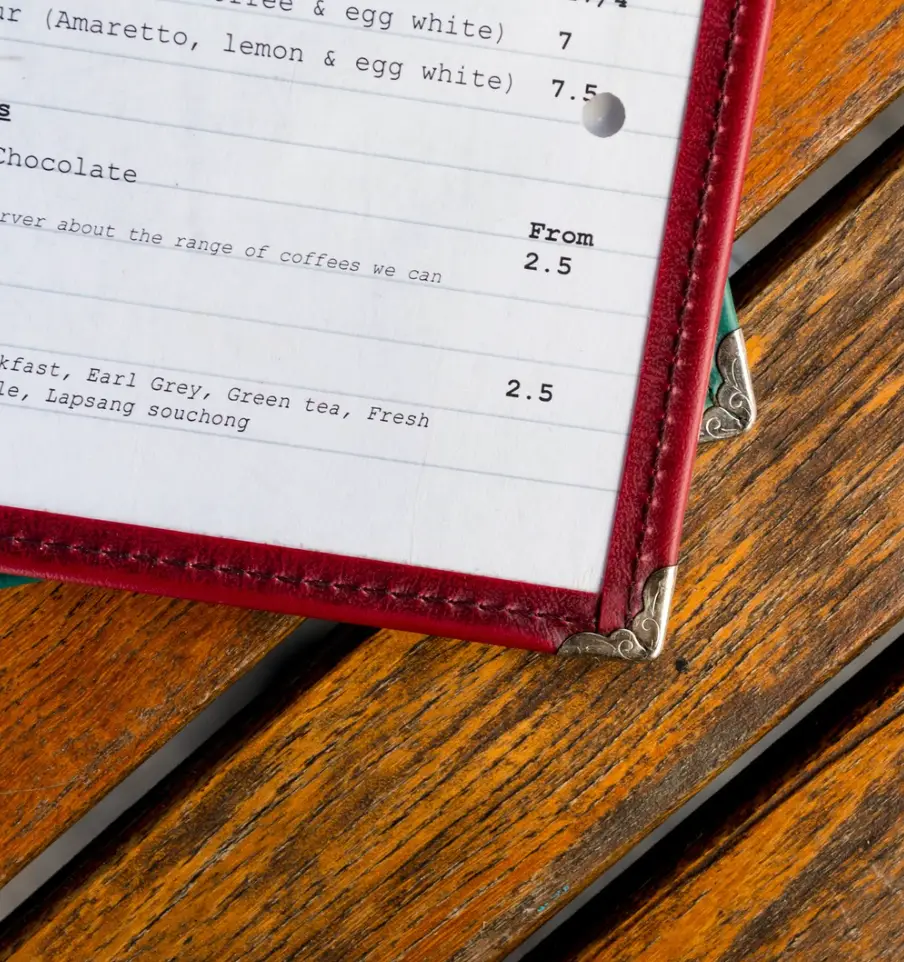 & egg white) 7
(Amaretto, lemon & egg white) 7.5
Chocolate
From
about the range of coffees we can 2.5
2.5
Earl Grey, Green tea, Fresh
Lapsang souchong